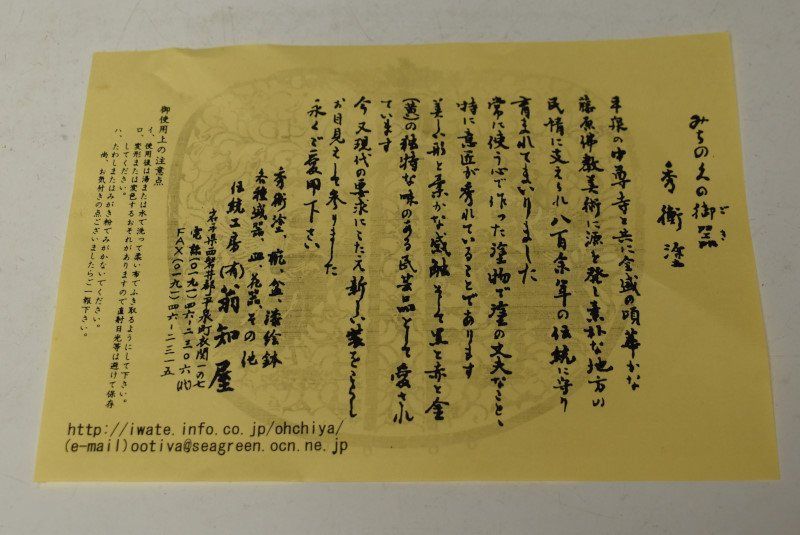 みちのくの御器
ごき
秀衡塗
平泉の中尊寺と共に全盛の頃華かな
藤原佛教美術に源を発し素朴な地方の
民情に支えられ八百余年の伝統に守り
育まれてまいりました
常に使う心で作った塗物で塗の丈夫なこと、
特に意匠が秀れていることであります
美しい形と豊かな感触そして黒と赤と金
(黄)の独特な味のある民芸品として愛され
ています
今又現代の要求にこたえ新しい装をこらし
お目見えして参りました
永くご愛用下さい
秀衡塗、椀、盆、漆絵鉢
各種城器、皿、花器、その他
伝統工房(有)翁知屋
岩手県西磐井郡平泉町衣関一の七
電話(〇一九一)四六-二三〇六(代)
FAX(〇一九一)四六-二三一五
御使用上の注意点
イ、使用後は湯または水で洗って柔い布でふき取るようにして下さい。
ロ、変形または変色するおそれがありますので直射日光等は避けて保存
してください。
ハ、たわしまたはみがき粉でみがかないでください。
尚、お気付きの点ございましたらご一報下さい。
http://iwate.info.co.jp/ohchiya/
(e-mail)ootiva@seagreen.ocn.ne.jp